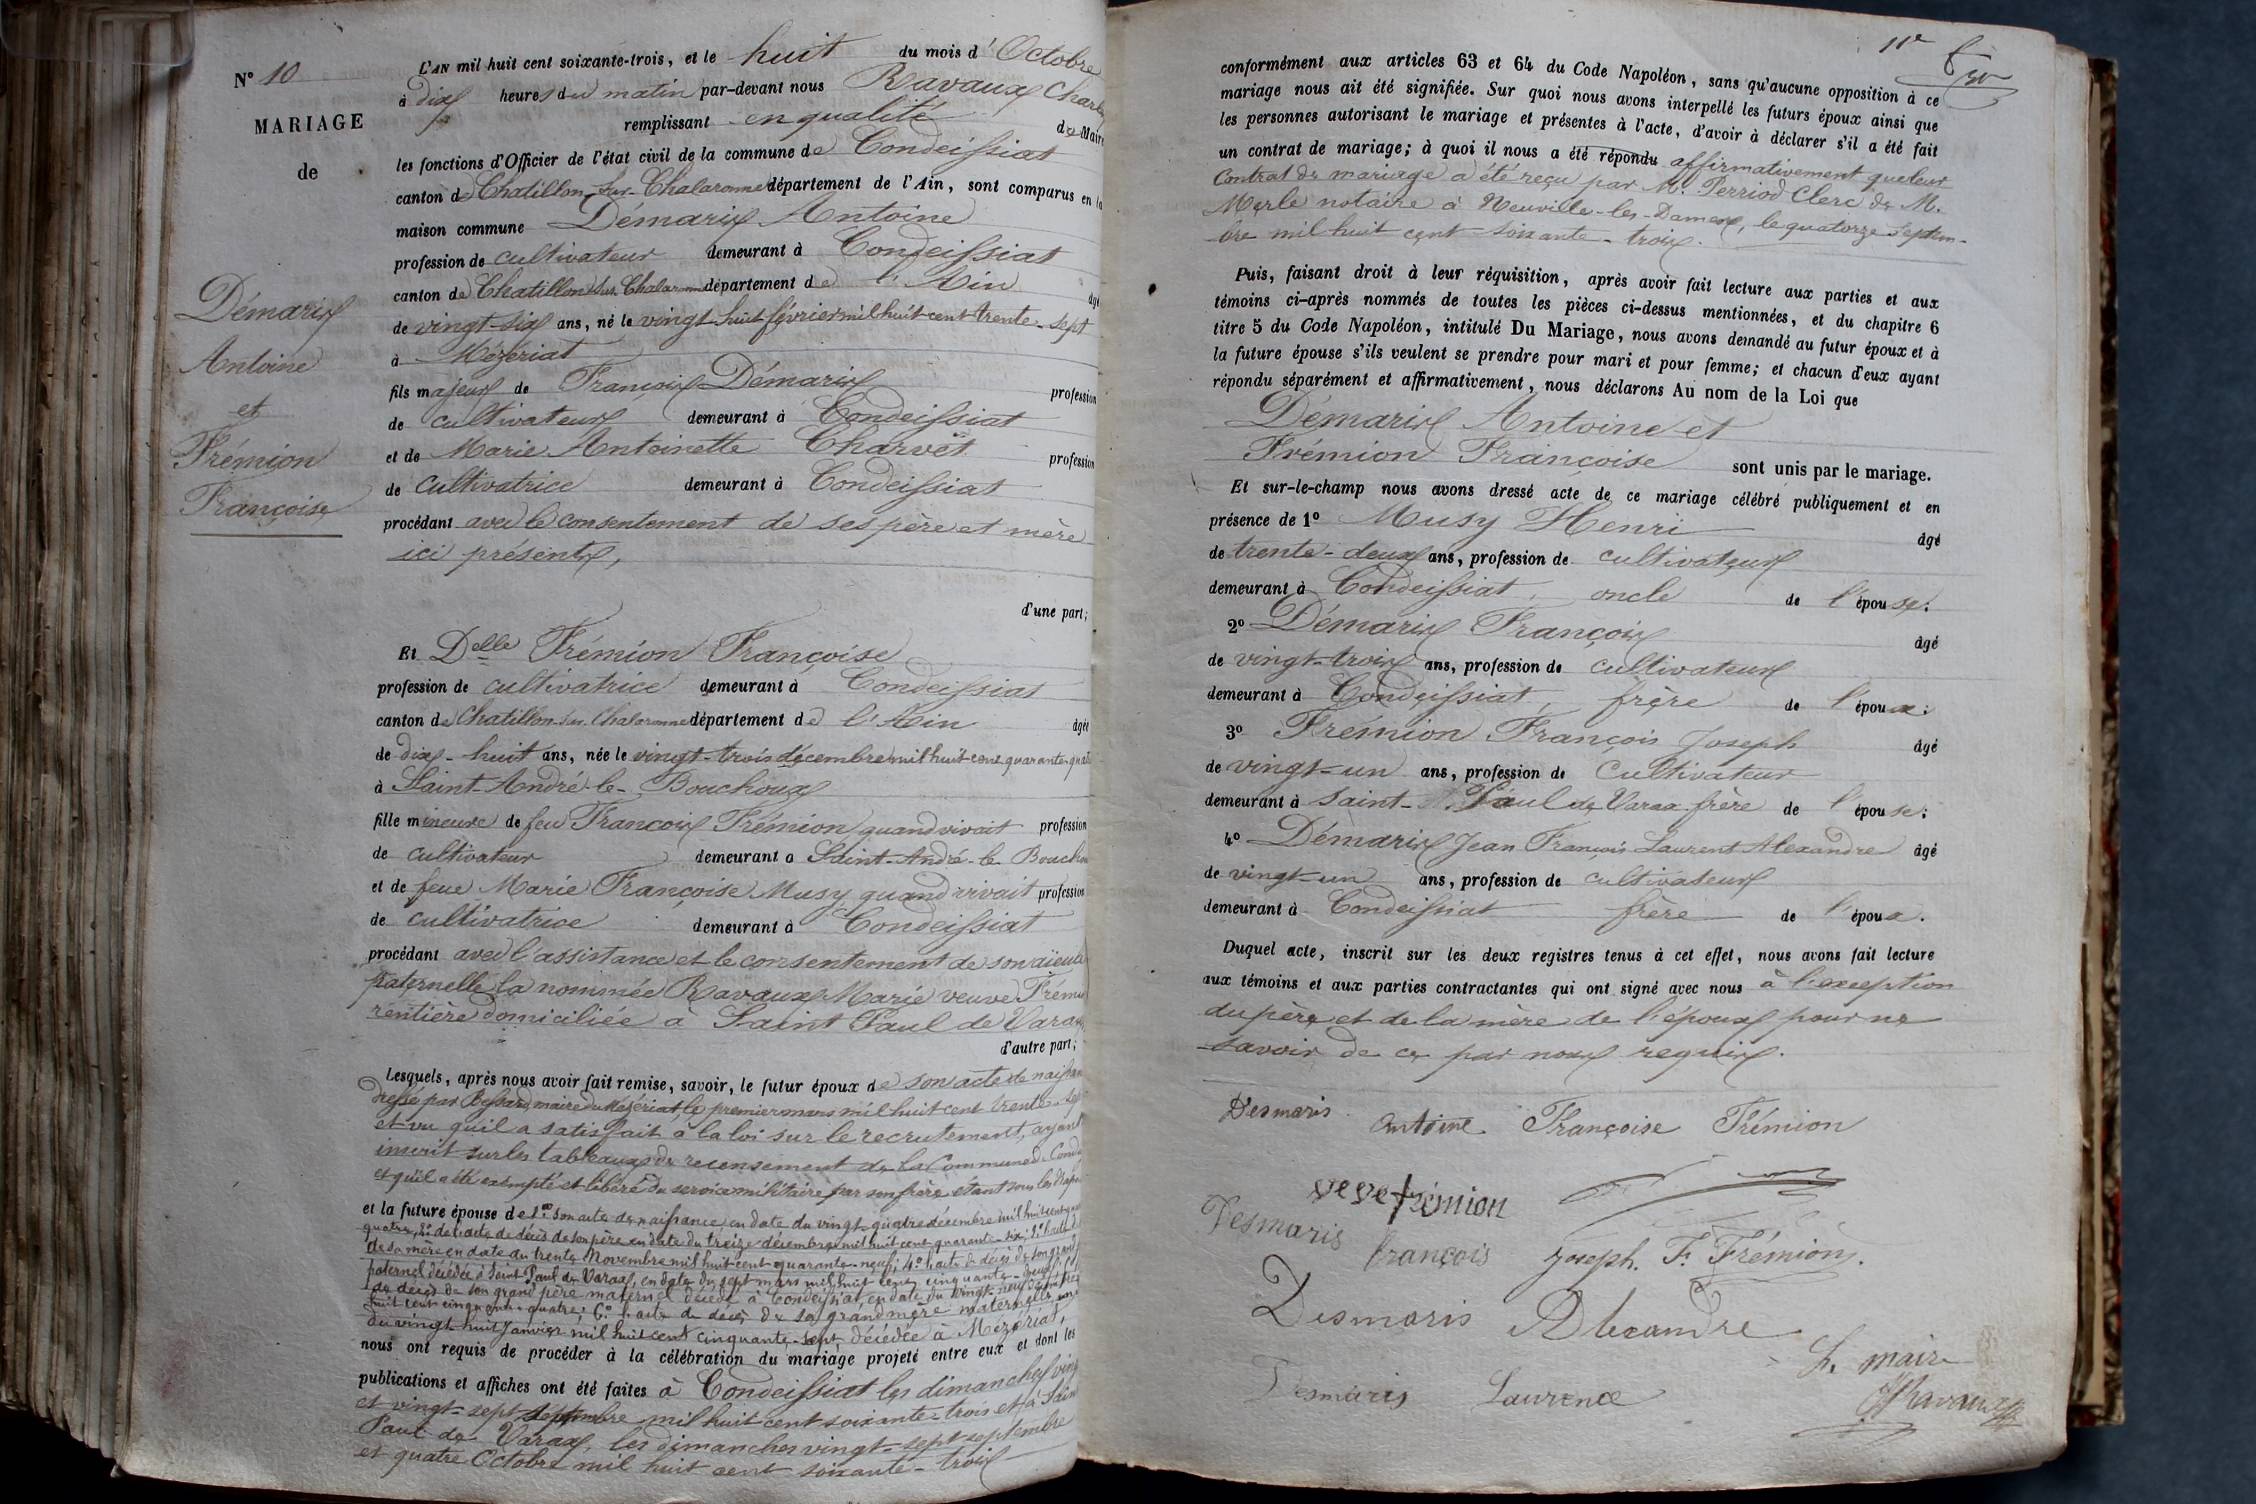 N° 10
MARIAGE
de
Démarix
Antoine
et
Frémion
Françoise
L'AN mil huit cent soixante-trois, et le huit du mois d'Octobre
à dix heures du matin par-devant nous Ravaux Charles
remplissant en qualité de Maire
les fonctions d'Officier de l'état civil de la commune de Condeissiat
canton de Chatillon-sur-Chalaronne département de l'Ain, sont comparus en la
maison commune Démarix Antoine
profession de cultivateur demeurant à Condeissiat
canton de Chatillon sur Chalaronne département de l'Ain âgé
de vingt-six ans, né le vingt-huit février mil huit cent trente-sept
à Mézériat
fils majeur de François Démarix profession
de cultivateur demeurant à Condeissiat
et de Marie Antoinette Charvet profession
de cultivatrice demeurant à Condeissiat
procédant avec le consentement de ses père et mère
ici présents,
d'une part;
Et Delle Frémion Françoise
profession de cultivatrice demeurant à Condeissiat
canton de Chatillon-sur-Chalaronne département de l'Ain âgée
de dix-huit ans, née le vingt-trois décembre mil huit cent quarante-quat
à Saint-André-le-Bouchoux
fille mineure de feu François Frémion quand vivait profession
de cultivateur demeurant à Saint-André-le Bouchou
et de feue Marie Françoise Musy quand vivait profession
de cultivatrice demeurant à Condeissiat
procédant avec l'assistance et le consentement de son aïeule
paternelle la nommée Ravaux Marie veuve Frémion
rentière domiciliée à Saint Paul de Varax
d'autre part;
Lesquels, après nous avoir fait remise, savoir, le futur époux de son acte de naissan
dressé par Bessard, maire du Mézériat, le premier mars mil huit cent trente-sept
et vu qu'il a satisfait à la loi sur le recrutement, ayant
inscrit sur les tableaux de recensement de la Commune de Conde
et qu'il a été exempté et libéré du service militaire par son frère étant sous les drapeau
et la future épouse de 1° son acte de naissance, en date du vingt-quatre décembre mil huit cent quar
quatre, 2° de l'acte de décès de son père en date du treize décembre mil huit cent quarante-six; 3° l'acte de
de sa mère en date du trente Novembre mil huit cent quarante-neuf; 4° l'acte de décès de son grand
paternel décédé à Saint Paul de Varax, en date du sept mars mil huit cent cinquante-deux;
de décès de son grand père maternel décédé à Condeissiat, en date du vingt-neuf décembre
huit cent cinquante-quatre; 6° l'acte de décès de sa grand mère maternelle,
du vingt-huit Janvier mil huit cent cinquante-sept décédée à Mézériat,
nous ont requis de procéder à la célébration du mariage projeté entre eux et dont les
publications et affiches ont été faites à Condeissiat les dimanches vingt
et vingt-sept septembre mil huit cent soixante-trois et à Saint
Paul de Varax, les dimanches vingt-sept septembre
et quatre Octobre mil huit cent soixante-trois
11e
conformément aux articles 63 et 64 du Code Napoléon, sans qu'aucune opposition à ce
mariage nous ait été signifiée. Sur quoi nous avons interpellé les futurs époux ainsi que
les personnes autorisant le mariage et présentes à l'acte, d'avoir à déclarer s'il a été fait
un contrat de mariage; à quoi il nous a été répondu affirmativement que leur
Contrat de mariage a été reçu par M. Perriod Clerc de M.
Merle notaire à Neuville-les-Dames, le quatorze Septem-
bre mil huit cent soixante-trois.
Puis, faisant droit à leur réquisition, après avoir fait lecture aux parties et aux
témoins ci-après nommés de toutes les pièces ci-dessus mentionnées, et du chapitre 6
titre 5 du Code Napoléon, intitulé Du Mariage, nous avons demandé au futur époux et à
la future épouse s'ils veulent se prendre pour mari et pour femme; et chacun d'eux ayant
répondu séparément et affirmativement, nous déclarons Au nom de la Loi que
Démarix Antoine et
Frémion Françoise sont unis par le mariage.
Et sur-le-champ nous avons dressé acte de ce mariage célébré publiquement et en
présence de 1° Musy Henri âgé
de trente-deux ans, profession de cultivateur
demeurant à Condeissiat, oncle de l'épouse;
2° Démarix François âgé
de vingt-trois ans, profession de cultivateur
demeurant à Condeissiat, frère de l'époux;
3° Frémion François Joseph âgé
de vingt-un ans, profession de Cultivateur
demeurant à Saint-Paul de Varax frère de l'épouse;
4° Démarix Jean François Laurent Alexandre âgé
de vingt-un ans, profession de cultivateur
demeurant à Condeissiat frère de l'époux.
Duquel acte, inscrit sur les deux registres tenus à cet effet, nous avons fait lecture
aux témoins et aux parties contractantes qui ont signé avec nous à l'exception
du père et de la mère de l'époux pour ne
savoir de ce par nous requis.
Desmaris antoine Françoise Frémion
veve frémion
Desmaris françois Joseph. F. Frémion.
Desmaris Alexandre
Desmaris Laurence
L. maire
Ravaux